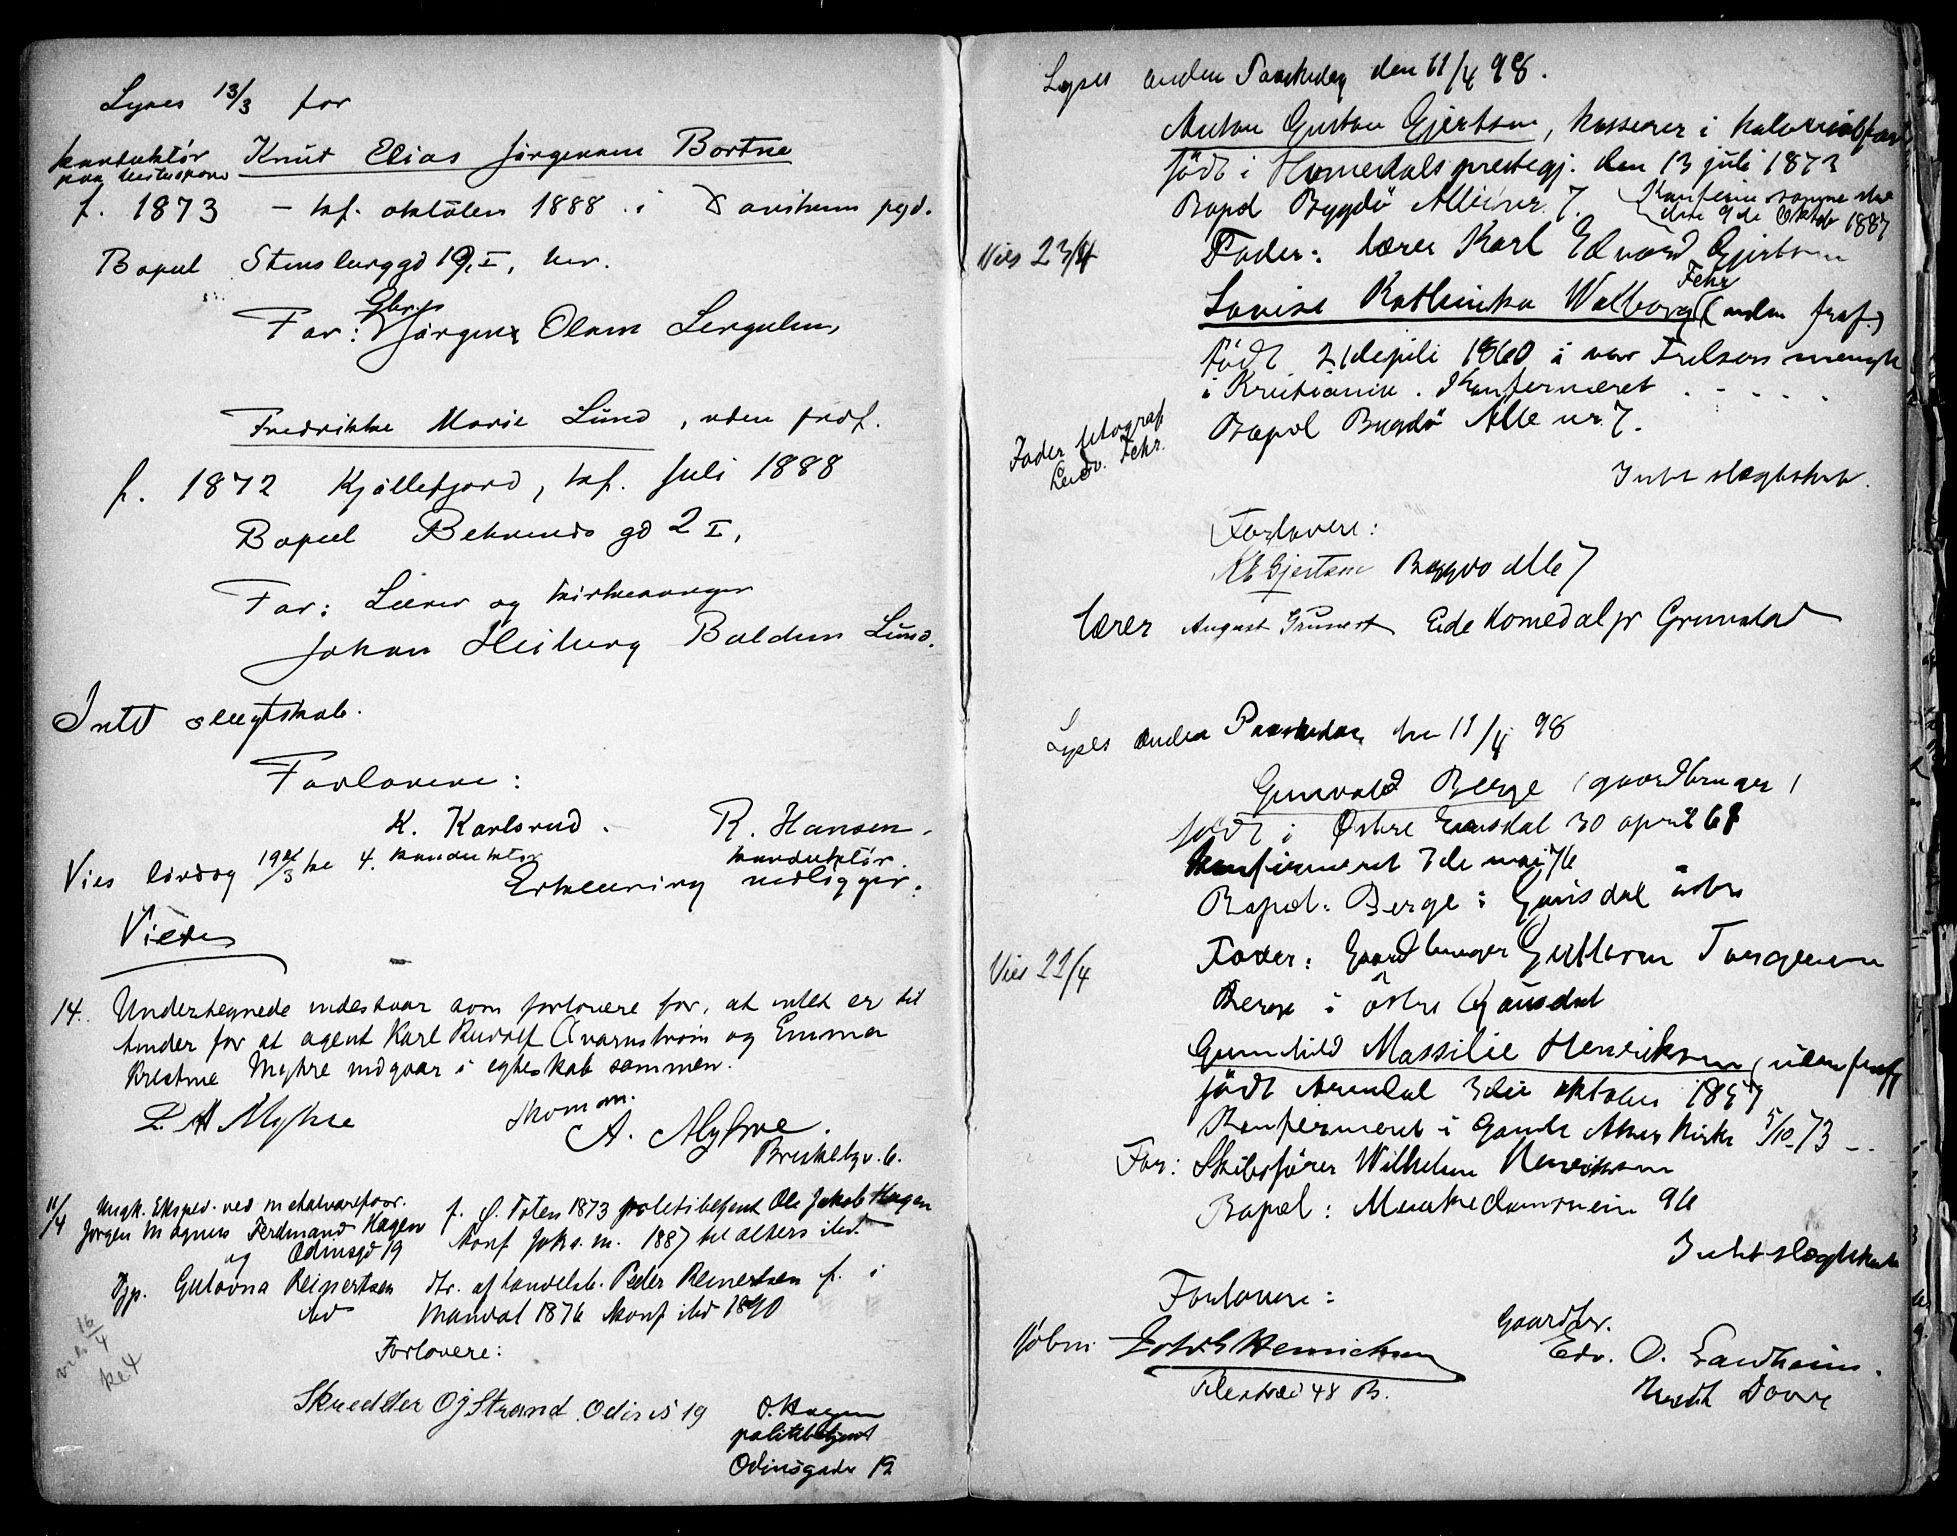 Lyses 13/3 for
konduktör Knut Elias Jörgensen Bortne
paa
f. 1873 – kf. oktober 1888 i Davikens pgd.
Bopæl Stensberggd 19, I, her.
Far: Gbr. Jörgen Olsen
Fredrikke Marie Lund, uden prof.
f. 1872 Kjöllefjord, kf. Juli 1888
Bopæl Behrends gd 2 I,
Far: Lærer og kirkesanger
Johan Heiberg Baldum Lund.
Intet slægtskab.
Forlovere:
K. Karlsrud. R. Hansen.
konduktör konduktör.
Vies lördag 19de/3 kl 4. Erklæring vedligger.
Viede
14. Undertegnede indestaar som forlovere for, at intet er til
hinder for at agent Karl Rudolf Qvarnström og Emma
Kristine Myhre indgaar i egteskab sammen.
L. A Myhre Skomm. A. Myhre.
Briskebyv. 6.
11/4 Ungk. Eksped. ved metalvareforr. f. Ö. Toten 1873 politibetjent Ole Jakob Hagen
Jørgen Magnus Ferdmand Hagen konf Johs. m. 1887 til alters ibd.
og Odinsgd 19
Pige Gulovna Reinertsen dtr. af handelsb. Peder Reinertsen f. i
ibd Mandal 1876 konf ibd 1890
16/4
kl 4
Forlovere:
Skrædder O J Strand. Odins 19 O. Hagen
politibetjent
Odinsgade 19
Lyses anden Paaskedag den 11/4 98.
Anton Gustav Gjertsen, kasserer i
född i Homedals prestegj. den 13 juli 1873
Bopæl Bygdö Allé nr. 7. Konfirm samme sted
den 9de Oktob 1887
Vies 23/4 Fader: lærer Karl Edvard Gjertsen
Lovise Kathinka Walborg Fehr (uden prof.)
född 21de juli 1860 i vor Frelsers menigh
i Kristiania. Konfirmeret . - . . .
Fader litograf
Ludv. Fehr.
Bopæl Bygdö Alle nr. 7.
Intet slægtskab.
Forlovere:
K E Gjertsen Bygdö alle 7
lærer August Grunert Eide Homedal pr Grimstad
Lyses anden Paaskedag den 11/4 98
Gunvald Berge (gaardbruger)
född i Østre Gausdal 30 april 61
konfirmeret 7de mai 76
Bopæl: Berge i Gausdal östre
Vies 22/4 Fader: Gaardbruger Guttorm Torgersen
Berge i östre Gausdal
Gunhild Massilie Henriksen (uden prof)
född Arendal 3die oktober 1857
Konfirmeret i Gamle Akers Kirke 5/10 73 --
Far: Skibsförer Wilhelm Henriksen
Bopæl: Munkedamsveien 96
Intet slægtskab
Forlovere:
Kjöbm. Henrichsen Gaardbr.
Edv. O. Landheim.
Pilestræd 48 B. Dovre